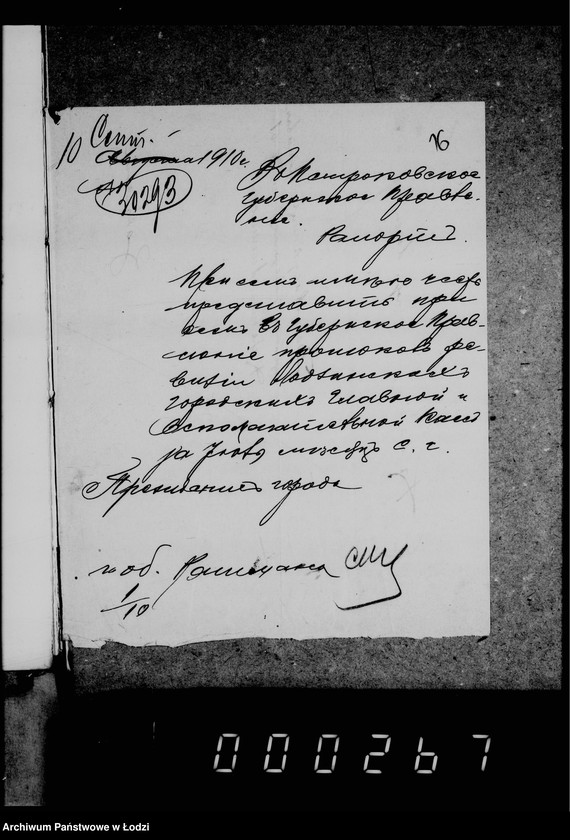 10 Сент.
Августа 1910 г.
30293
76
Въ Петроковское
Губернское Правле-
ніе.
Рапортъ.
При семъ имѣю честь
представить при
семъ въ Губернское Прав-
леніе протоколъ ре-
визіи Лодзинскихъ
городскихъ Главной и
Вспомогательной Кассъ
за Іюль мѣсяцъ с. г.
Президентъ города
и об.
1/10
000267
Archiwum Państwowe w Łodzi